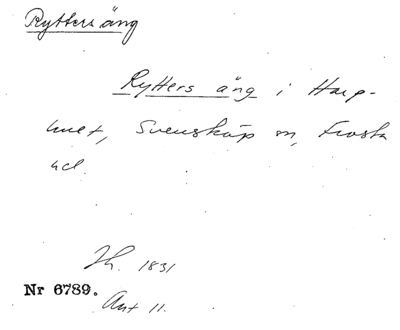 Rytters äng
Rytters äng i Harp-
hult, Svensköp sn, Frosta
hd.
Jh. 1831
Nr 6789.
Akt 11.